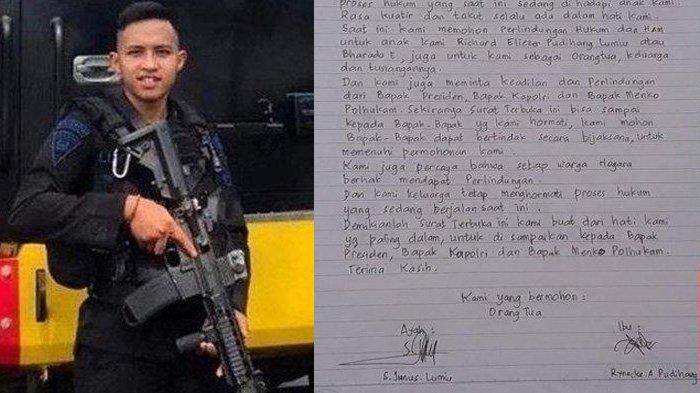 proses hukum yang saat ini sedang di hadapi anak kami.
Rasa kuatir dan takut selalu ada dalam hati kami.
Saat ini kami memohon Perlindungan Hukum dan HAM
untuk anak kami Richard Eliezer Pudihang Lumiu atau
Bharada E, juga untuk kami sebagai Orangtua, keluarga
dan tunangannya.
Dan kami juga meminta Keadilan dan Perlindungan
dari Bapak Presiden, Bapak Kapolri dan Bapak Menko
Polhukam. Sekiranya Surat Terbuka ini bisa sampai
kepada Bapak-Bapak yg kami hormati, kami mohon
Bapak-Bapak dapat bertindak secara bijaksana, untuk
memenuhi permohonan kami.
Kami juga percaya bahwa setiap warga Negara
berhak mendapat Perlindungan.
Dan kami keluarga tetap menghormati proses hukum
yang sedang berjalan saat ini.
Demikianlah Surat Terbuka ini kami buat dari hati kami
yg paling dalam, untuk di sampaikan kepada Bapak
Presiden, Bapak Kapolri dan Bapak Menko Polhukam.
Terima Kasih.
Kami yang bermohon:
Orang Tua
Ayah: Ibu:
S. Junus. Lumiu Rynecke A Pudihang